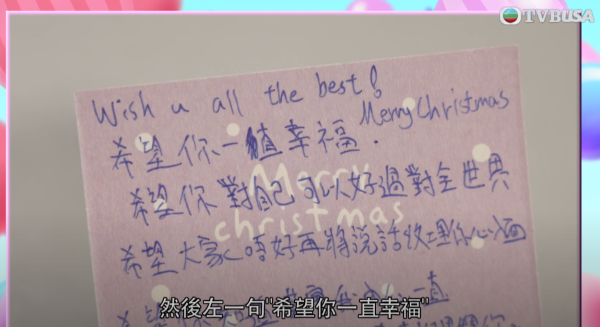 TVBUSA
Wish u all the best!
Merry Christmas
希望你一直幸福.
希望你對自己可以好過對全世界
Merry
christmas
希望大家唔好再將說話收埋你心面
希望
一直
然後左一句"希望你一直幸福"